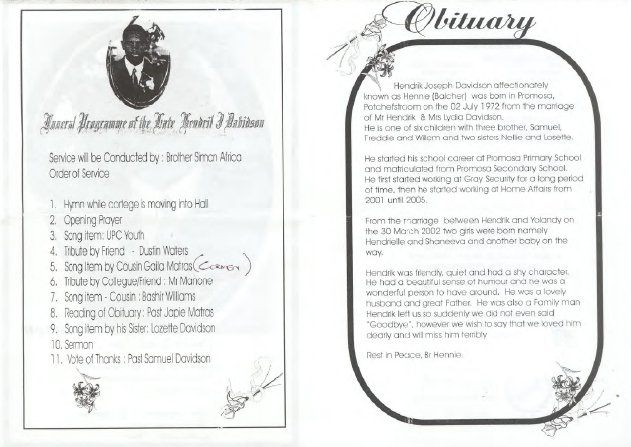 Funeral Programme of the Late Hendrik J Davidson
Service will be Conducted by : Brother Simon Africa
Order of Service
1. Hymn while cortege is moving into Hall
2. Opening Prayer
3. Song item: UPC Youth
4. Tribute by Friend - Dustin Waters
5. Song Item by Cousin Gaila Matros
6. Tribute by Collegue/Friend : Mr Marione
7. Song item - Cousin : Bashir Williams
8. Reading of Obituary : Past Japie Matros
9. Song item by his Sister: Lozette Davidson
10. Sermon
11. Vote of Thanks : Past Samuel Davidson
Obituary
Hendrik Joseph Davidson affectionately
known as Hennie (Balcher) was born in Promosa,
Potchefstroom on the 02 July 1972 from the marriage
of Mr Hendrik & Mrs Lydia Davidson.
He is one of six children with three brother, Samuel,
Freddie and Willem and two sisters Nellie and Losette.
He started his school career at Promosa Primary School
and matriculated from Promosa Secondary School.
He first started working at Gray Security for a long period
of time, then he started working at Home Affairs from
2001 until 2005.
From the marriage between Hendrik and Yolandy on
the 30 March 2002 two girls were born namely
Hendrielle and Shaneeva and another baby on the
way.
Hendrik was friendly, quiet and had a shy character.
He had a beautiful sense of humour and he was a
wonderful person to have around. He was a lovely
husband and great Father. He was also a Family man
Hendrik left us so suddenly we did not even said
"Goodbye", however we wish to say that we loved him
dearly and will miss him terribly
Rest in Peace, Br Hennie.